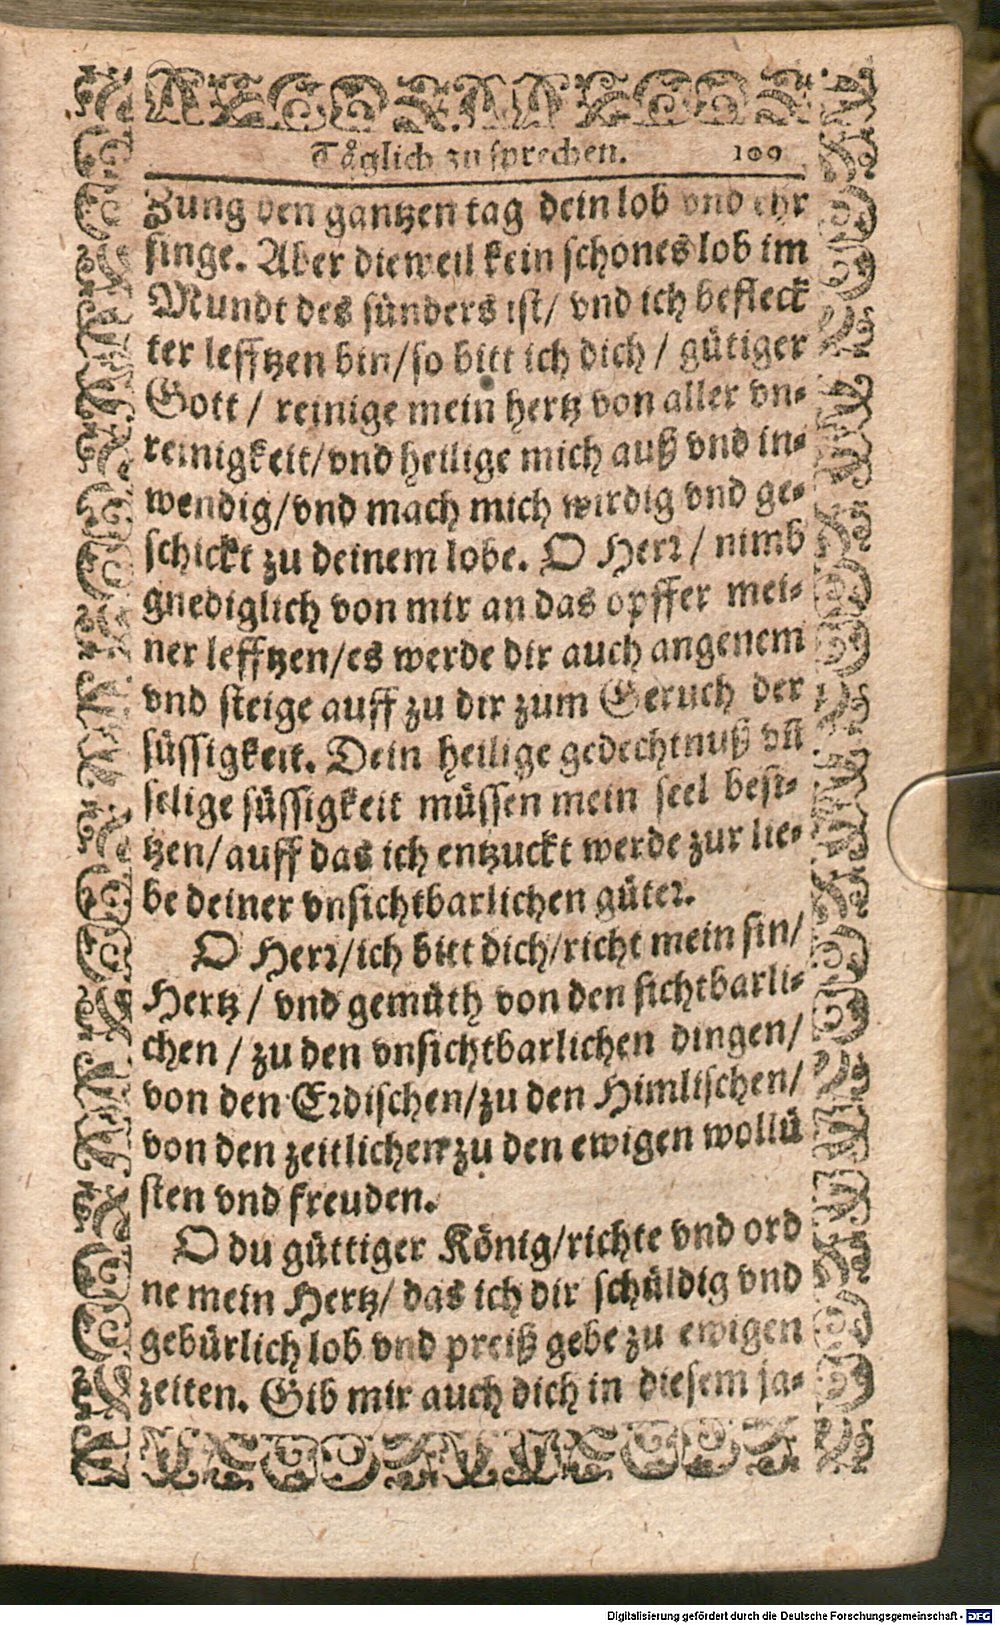 Täglich zu sprechen. 109
Zung den gantzen tag dein lob vnd ehr
singe. Aber dieweil kein schönes lob im
Mundt des sünders ist/ vnd ich befleck
ter lefftzen bin/so bitt ich dich / gütiger
Gott / reinige mein hertz von aller vn-
reinigkeit/vnd heilige mich auß vnd in-
wendig/vnd mach mich wirdig vnd ge-
schickt zu deinem lobe. O Herr / nimb
gnediglich von mir an das opffer mei-
ner lefftzen/es werde dir auch angenem
vnd steige auff zu dir zum Geruch der
süssigkeit. Dein heilige gedechtnuß vñ
selige süssigkeit müssen mein seel besi-
tzen/auff das ich entzuckt werde zur lie-
be deiner vnsichtbarlichen güter.
O Herr/ich bitt dich/richt mein sin/
Hertz / vnd gemüth von den sichtbarli-
chen / zu den vnsichtbarlichen dingen/
von den Erdischen/zu den Himlischen/
von den zeitlichen zu den ewigen wollü
sten vnd freuden.
O du güttiger König/richte vnd ord
ne mein Hertz/ das ich dir schüldig vnd
gebürlich lob vnd preiß gebe zu ewigen
zeiten. Gib mir auch dich in diesem ja-
Digitalisierung gefördert durch die Deutsche Forschungsgemeinschaft - DFG